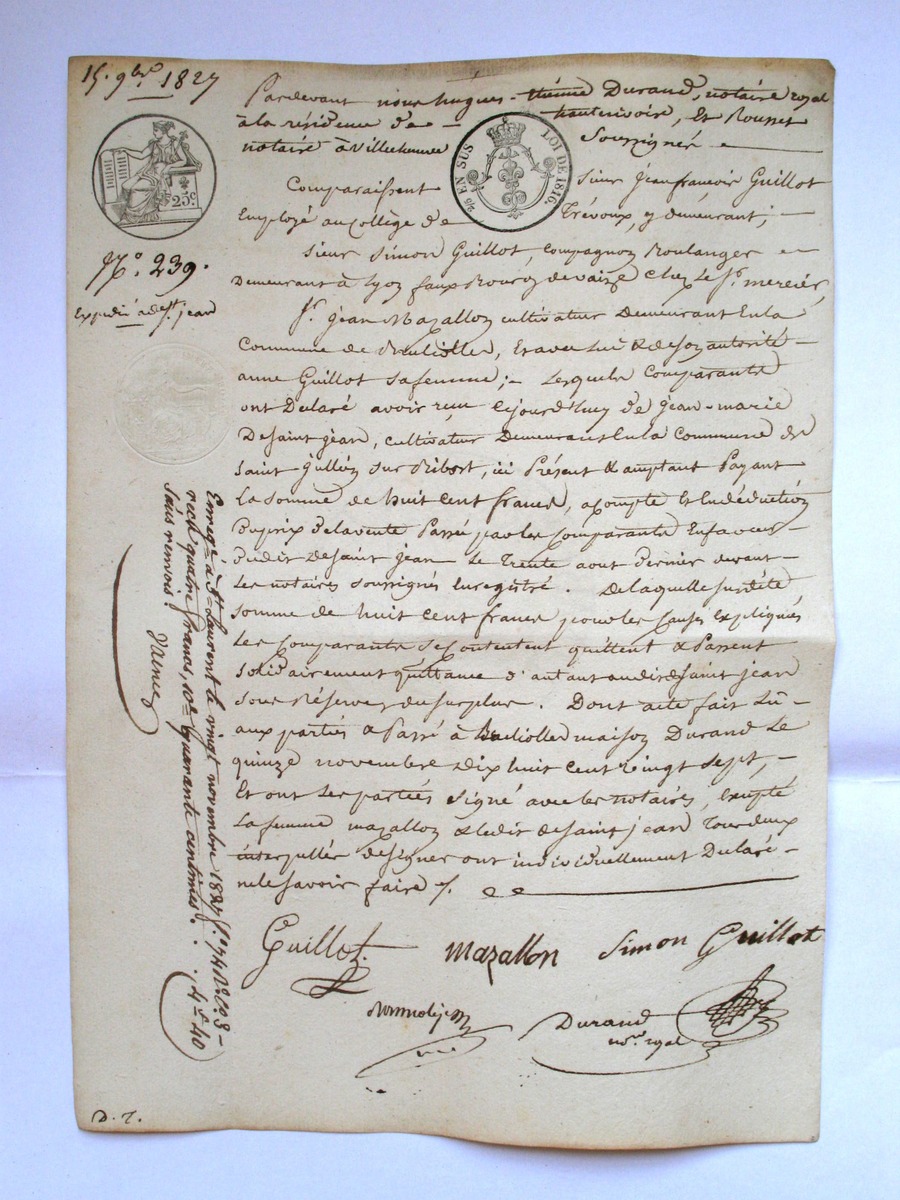 15. 9bre 1827
Pardevant nous hugues-thienne Durand, notaire royal
à la résidence de hauterivoire, Et Rousset
notaire à Villecheneve Soussignés
25c
2/10 EN SUS LOI DE 1816.
Comparaissent Sieur jean françois Guillot
Employé au Collège de Trévoux, y demeurant;
Sieur Simon Guillot, compagnon Boulanger
Demeurant à Lyon fauxbourg de vaize chez le Sr. mercier,
No. 239.
Expédié à de St. jean
Sr. jean Mazallon cultivateur Demeurant En la
Commune de Brullioller, Et avec lui & de son autorité
anne Guillot sa femme; Lesquels Comparants
ont Déclaré avoir reçu cejourd'huy de jean-marie
Desaint jean, cultivateur Demeurant En la Commune de
Saint jullien sur Bibost, ici Présent & acceptant Payant
La somme de huit cent francs, acompte Et En déduction
Du prix De la vente Passée par les Comparants En faveur
Dudit Desaint jean Le Trente aout Dernier devant
Les notaires soussignés Enregistré. De laquelle susdite
somme de huit cent francs pour les Causes Expliquées
Les Comparants se Contentent quittent & Passent
Solidairement quittance d'autant audit Desaint jean
Sous Réserves du surplus. Dont acte fait Lû
aux parties & Passé à Brullioller maison Durand Le
quinze novembre Dix huit cent vingt Sept,
Et ont Les parties Signé avec les notaires, Excepté
La femme mazallon & Ledit Desaint jean Tous deux
interpellés de signer ont individuellement Déclaré
ne le Savoir faire /.
Enregé à St. Laurent le vingt novembre 1827 fo 74 Ro C 8
reçu quatre francs, 10e quarante centimes. 4f 40
sans renvois.
Guillot. Mazallon Simon Guillot
Durand
nore royal
D. T.